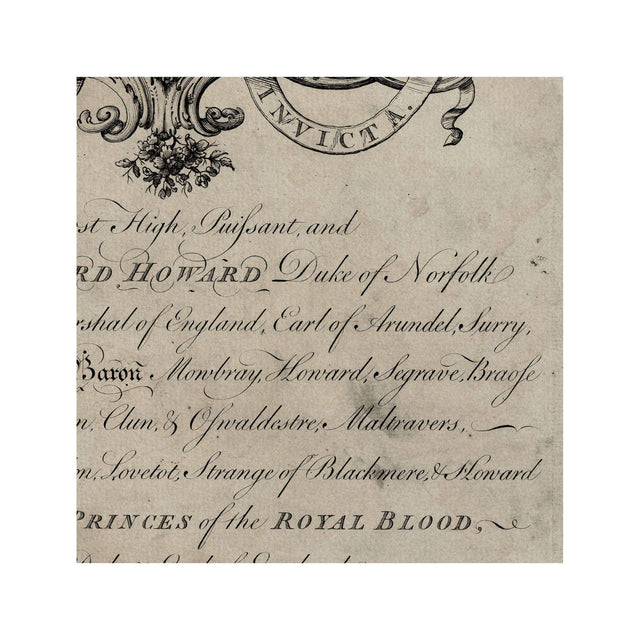 INVICTA.
st High, Puiſsant, and
RD HOWARD Duke of Norfolk
rshal of England, Earl of Arundel, Surry,
Baron Mowbray, Howard, Segrave, Braoſe
n, Clun, & Oſwaldestre, Maltravers,
on, Lovetot, Strange of Blackmere, & Howard
PRINCES of the ROYAL BLOOD,